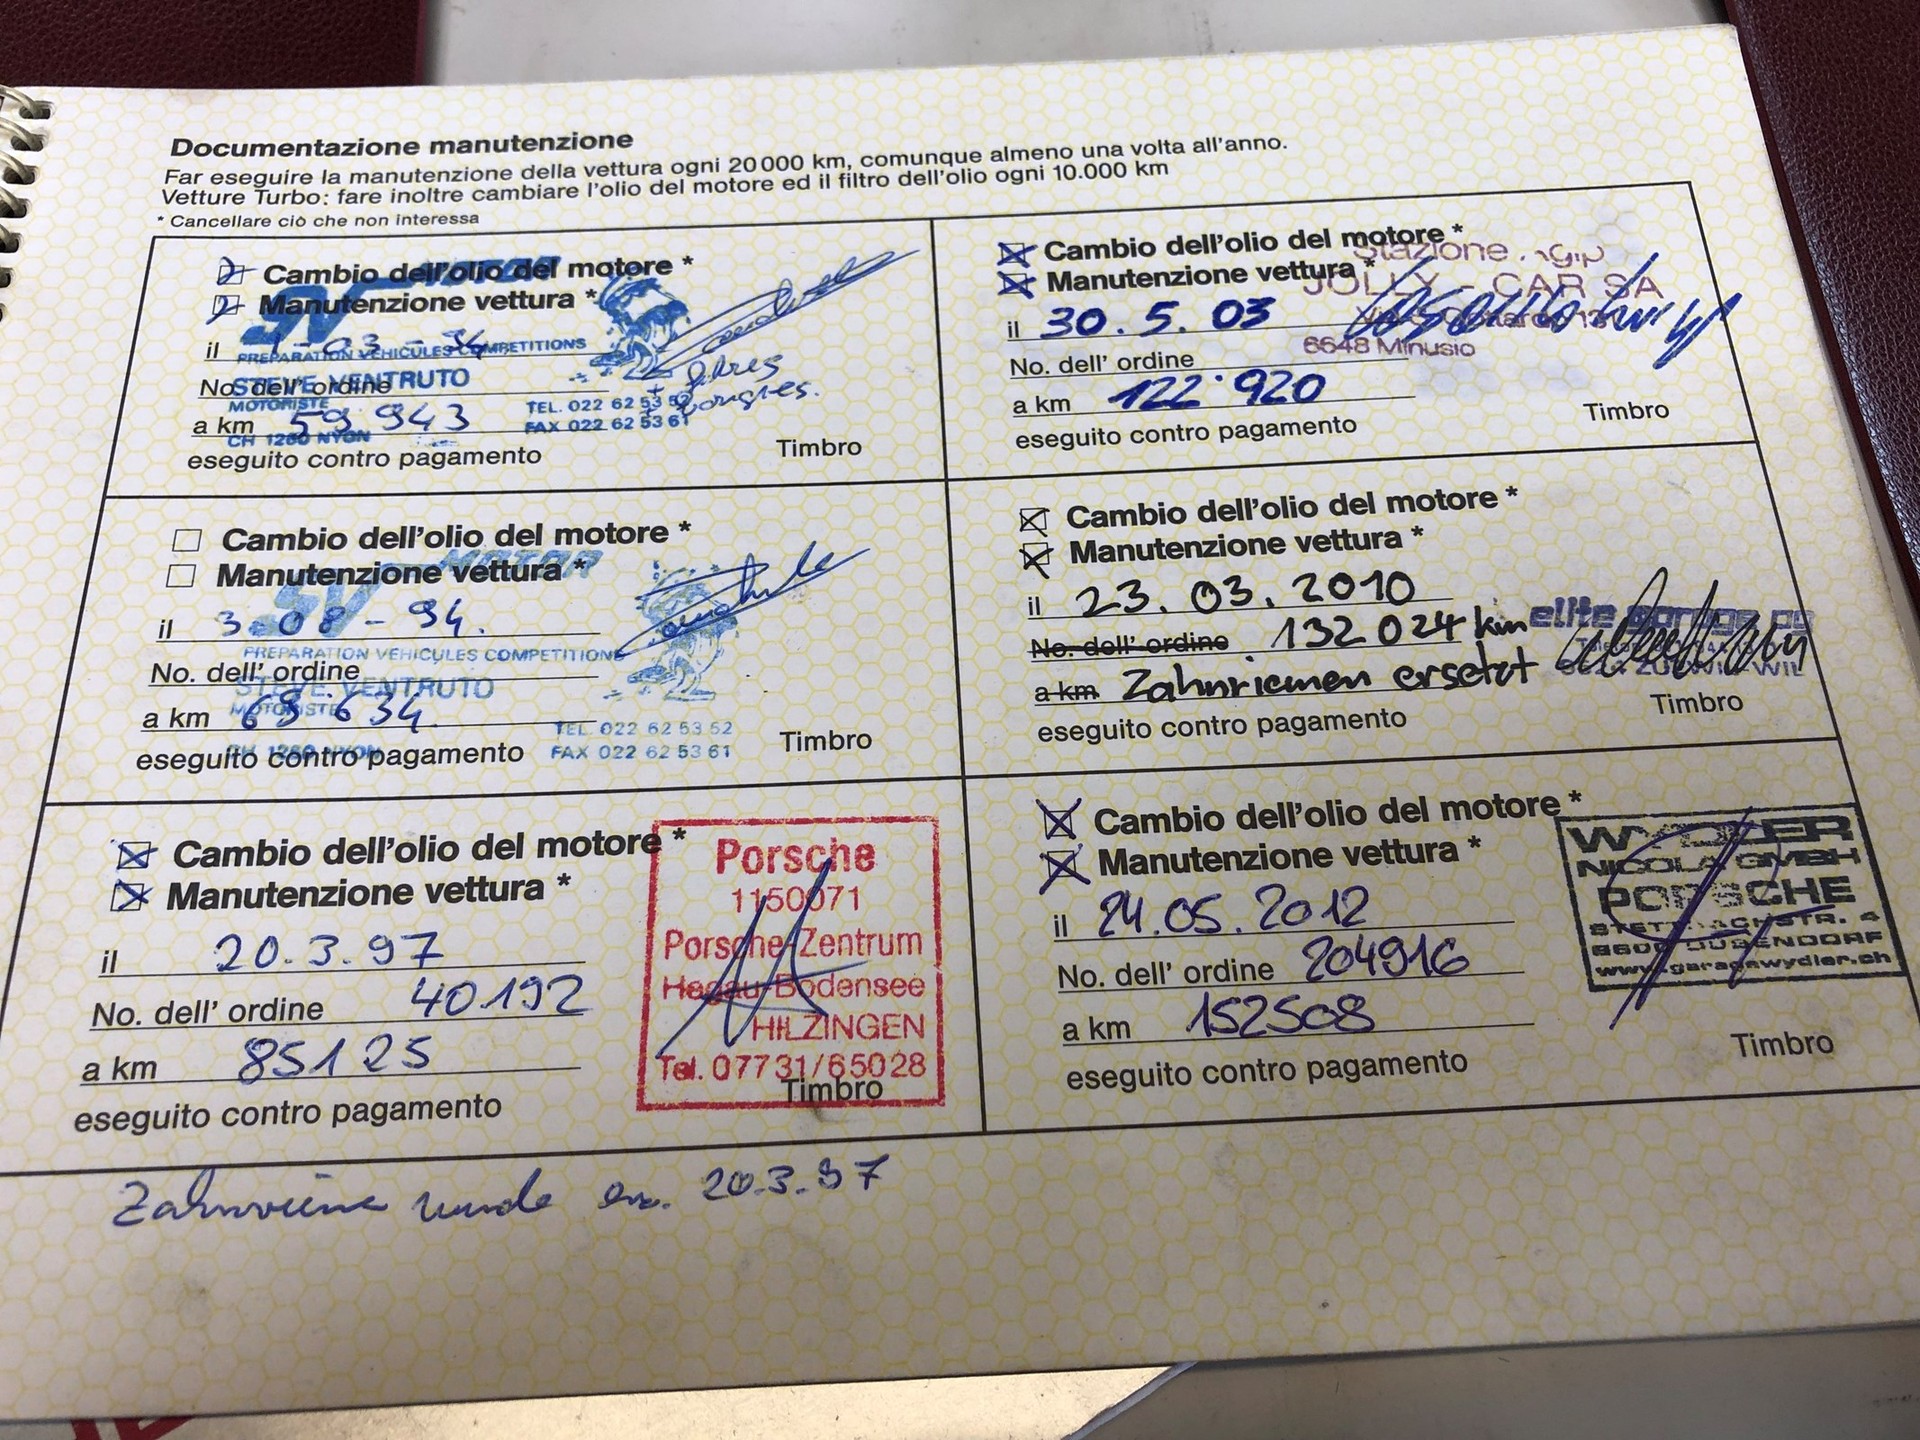 Documentazione manutenzione
Far eseguire la manutenzione della vettura ogni 20 000 km, comunque almeno una volta all'anno.
Vetture Turbo: fare inoltre cambiare l'olio del motore ed il filtro dell'olio ogni 10.000 km
* Cancellare ciò che non interessa
Cambio dell'olio del motore *
Manutenzione vettura *
SV MOTOR
il
PREPARATION VEHICULES COMPETITIONS
No. dell' ordine
STEVE VENTRUTO
MOTORISTE
TEL. 022 62 53 52
a km 59 943
CH 1260 NYON
FAX 022 62 53 61
eseguito contro pagamento
Timbro
Cambio dell'olio del motore *
Manutenzione vettura *
SV MOTOR
il 3-08-94.
PREPARATION VEHICULES COMPETITIONS
No. dell' ordine
STEVE VENTRUTO
MOTORISTE
a km 69 634
TEL. 022 62 53 52
CH 1260 NYON
FAX 022 62 53 61
eseguito contro pagamento
Timbro
Cambio dell'olio del motore *
Manutenzione vettura *
il 20.3.97
No. dell' ordine 40192
a km 85125
eseguito contro pagamento
Porsche
1150071
Porsche-Zentrum
Hegau-Bodensee
HILZINGEN
Tel. 07731/65028
Timbro
Cambio dell'olio del motore *
Manutenzione vettura *
Stazione Agip
JOLLY - CAR SA
il 30.5.03
6648 Minusio
No. dell' ordine
a km 122'920
Timbro
eseguito contro pagamento
Cambio dell'olio del motore *
Manutenzione vettura *
il 23.03.2010
No. dell' ordine 132 024 km
elite garage ag
a km Zahnriemen ersetzt
Timbro
eseguito contro pagamento
Cambio dell'olio del motore *
Manutenzione vettura *
il 24.05.2012
No. dell' ordine 204916
a km 152508
eseguito contro pagamento
WYDLER
NICOLA GMBH
PORSCHE
8600 DÜBENDORF
www.garagewydler.ch
Timbro
20.3.97